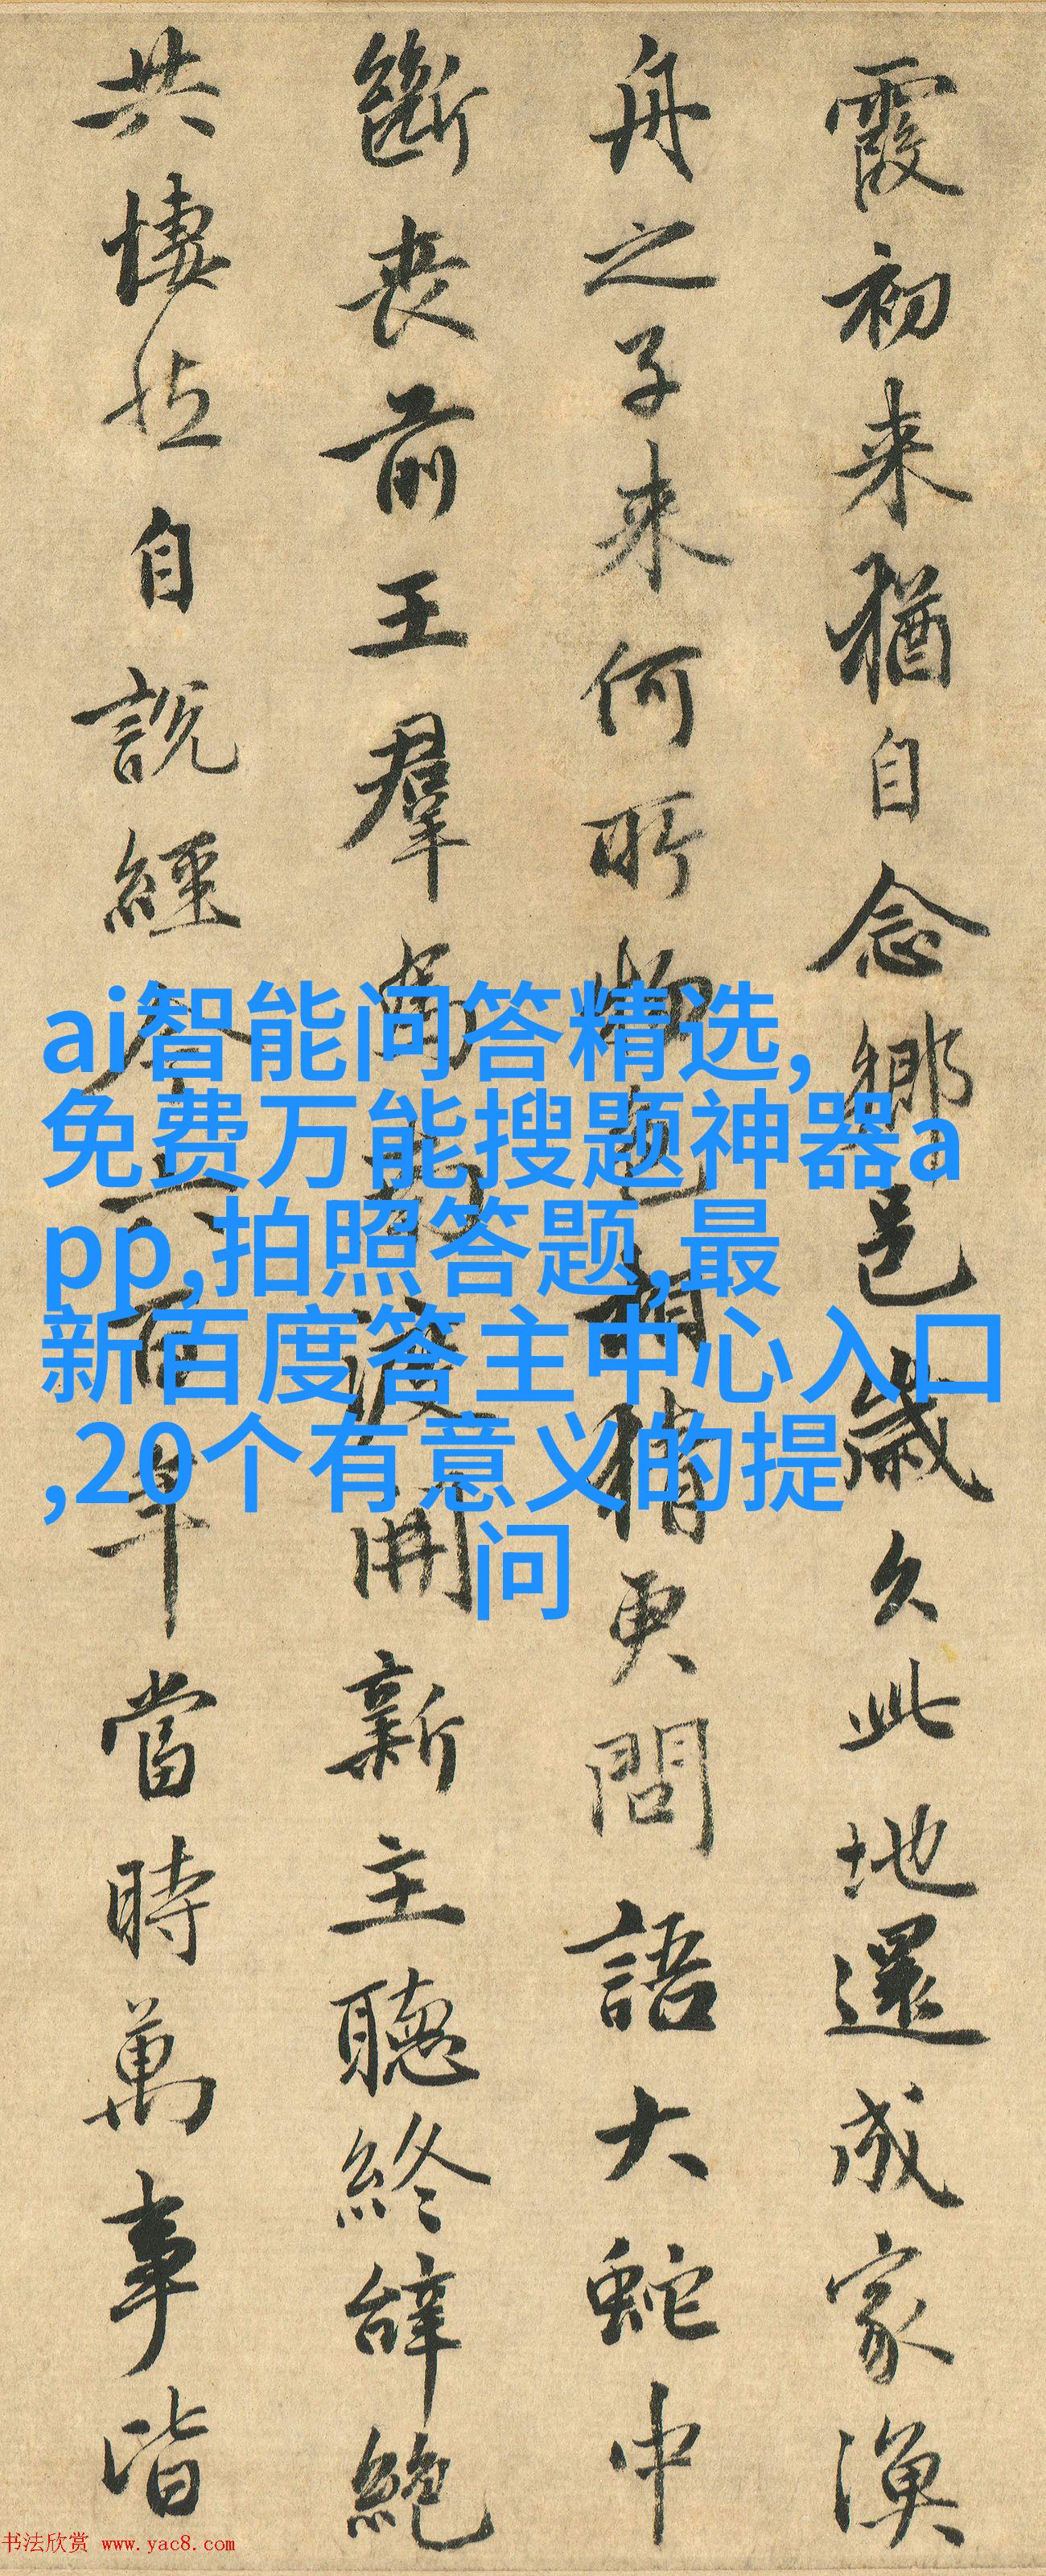 霞初来猶自念鄉邑歲久此地還成家漁
舟之子来何所物色相猜更問語大蛇中
斷丧前王羣馬南渡開新主聽終辭絶
共悽然自説經今六百年當時萬事皆
ai智能问答精选,
免费万能搜题神器a
pp,拍照答题,最
新百度答主中心入口
,20个有意义的提
问
书法欣赏 www.yac8.com